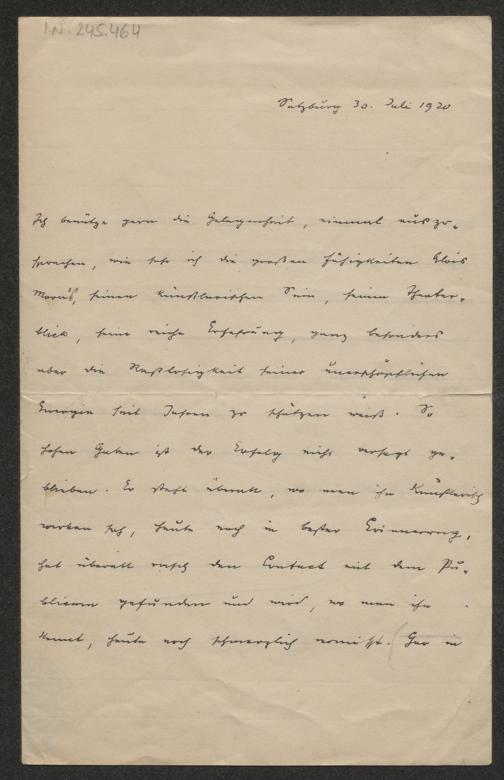 I.N. 245.464
Salzburg 30. Juli 1920
Ich benütze gern die Gelegenheit, einmal auszu-
sprechen, wie sehr ich die großen Fähigkeiten Alois
seinen künstlerischen Sinn, seinen Theater-
blick, seine reiche Erfahrung, ganz besonders
aber die Rastlosigkeit seiner unerschöpflichen
Energie seit Jahren zu schätzen weiß. So
hohen Gaben ist der Erfolg nicht versagt ge-
blieben. Er steht überall, wo man ihn künstlerisch
wirken sah, heute noch in bester Erinnerung,
hat überall rasch den Contact mit dem Pu-
blicum gefunden und wird, wo man ihn
kennt, heute noch schmerzlich vermißt. (Hier in